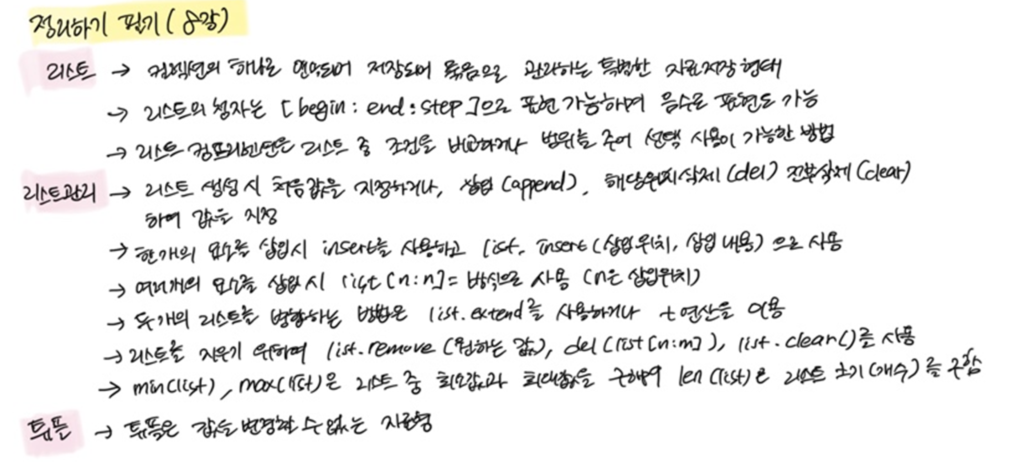 정리하기 필기(8강)
리스트 → 컬렉션의 하나로 연속되어 저장되어 묶음으로 관리하는 특별한 자료저장 형태
→ 리스트의 첨자는 [begin:end:step]으로 표현 가능하며 음수로 표현도 가능
→ 리스트 컴프리헨션은 리스트 중 조건을 비교하거나 범위를 주어 선택 사용이 가능한 방법
리스트관리 → 리스트 생성시 처음값을 지정하거나, 삽입(append), 해당위치삭제(del) 전부삭제(clear)
하여 값을 지정
→ 한개의 요소를 삽입시 insert를 사용하고 list.insert(삽입위치, 삽입내용)으로 사용
→ 여러개의 요소를 삽입시 list[n:n]= 방식으로 사용 (n은 삽입위치)
→ 두개의 리스트를 병합하는 방법은 list.extend를 사용하거나 +연산을 이용
→ 리스트를 지우기 위하여 list.remove(원하는 값), del(list[n:m]), list.clear()를 사용
→ min(list), max(list)은 리스트 중 최소값과 최대값을 구하며 len(list)은 리스트 크기(개수)를 구함
튜플 → 튜플은 값을 변경할 수 없는 자료형